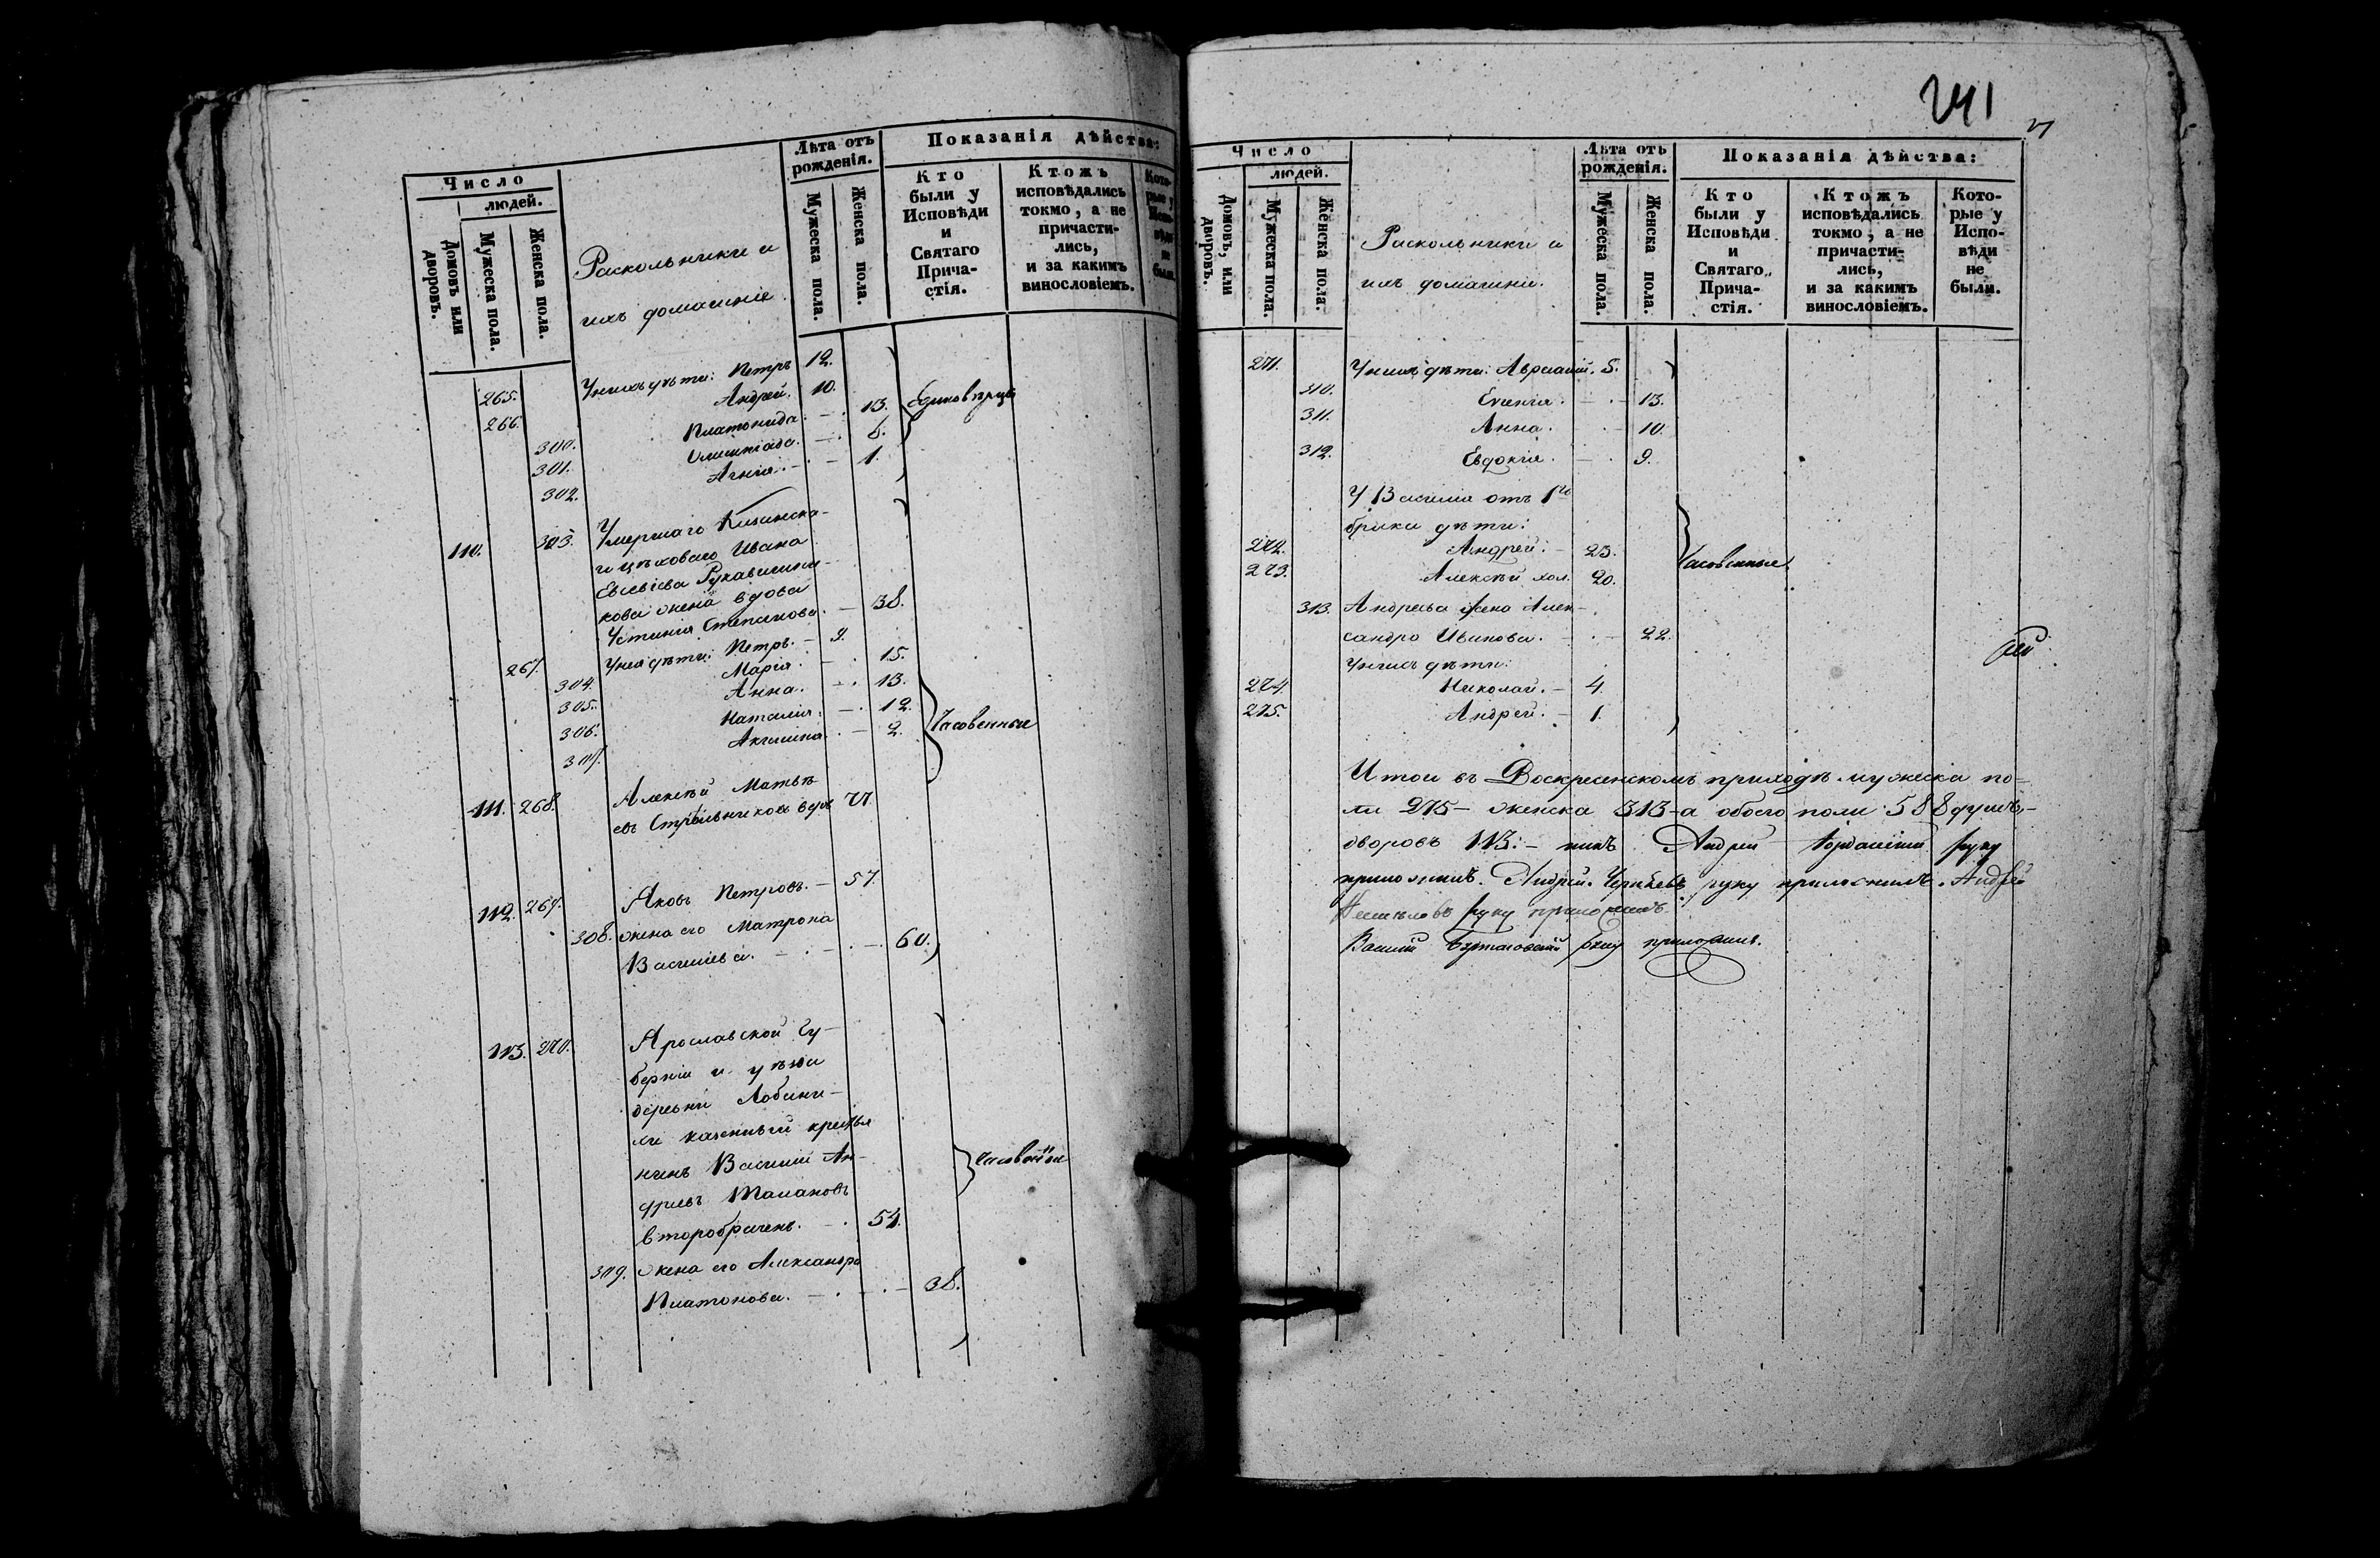 Число
людей.
Домовъ или дворовъ.
Мужеска пола.
Женска пола.
Раскольники и
ихъ домашніе
Лѣта отъ рожденія.
Мужеска пола.
Женска пола.
Показанія дѣйства:
Кто были у Исповѣди и Святаго Причастія.
Ктожъ исповѣдались токмо, а не причастились, и за какимъ винословіемъ.
Которые у Исповѣди не были.
265. У нихъ дѣти: Петръ 12.
266. Андрей. 10.
300. Платонида. – 13. Единовѣрцы
301. Олимпіада. – 6.
302. Агнія. – 1.
110. 303. Умершаго
цѣховаго Ивана
Евсевіева Рукавишни-
кова жена вдова
Устинія Степанова. – 38.
267. У нея дѣти: Петръ. – 9.
304. Марія. – 15.
305. Анна. – 13.
306. Наталія. – 12.
307. Акилина. – 2. Часовенные
111. 268. Алексѣй Матвѣ-
евъ Стрѣльниковъ вдов 77.
112. 269. Яковъ Петровъ. – 57.
308. жена его Матрона
Васильева. – 60.
113. 270. Ярославской Гу-
берніи и уѣзда
деревни
казенный крестья
нинъ Василій Ан-
дреевъ
второбраченъ. – 54.
Часовенные
309. жена его Александра
Платонова. – 38.
241
Число
людей.
Домовъ, или дворовъ.
Мужеска пола.
Женска пола.
Раскольники и
ихъ домашніи.
Лѣта отъ рожденія.
Мужеска пола.
Женска пола.
Показанія дѣйства:
Кто были у Исповѣди и Святаго Причастія.
Ктожъ исповѣдались токмо, а не причастились, и за какимъ винословіемъ.
Которые у Исповѣди не были.
271. У нихъ дѣти: Авраамій. 5.
310. Евгенія. – 13.
311. Анна. – 10.
312. Евдокія. – 9.
У Василія отъ 1го
брака дѣти:
272. Андрей. – 23.
273. Алексѣй хол. 20. Часовенные
313. Андрея жена Алек-
сандра Иванова. – 22.
У нихъ дѣти:
274. Николай. – 4.
275. Андрей. – 1.
Итого въ Воскресенскомъ приходѣ мужеска по-
ла 275 – женска 313 – а обоего пола 588 душъ, –
дворовъ 113: – Андрей руку
приложилъ. Андрей руку приложилъ. Андрей
руку приложилъ.
Василій руку приложилъ.